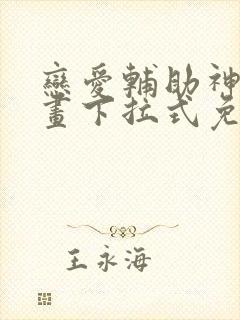 戀愛輔助神
畫下拉式免
王永海